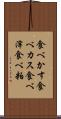 食べかす食
べカス食べ
滓食べ粕